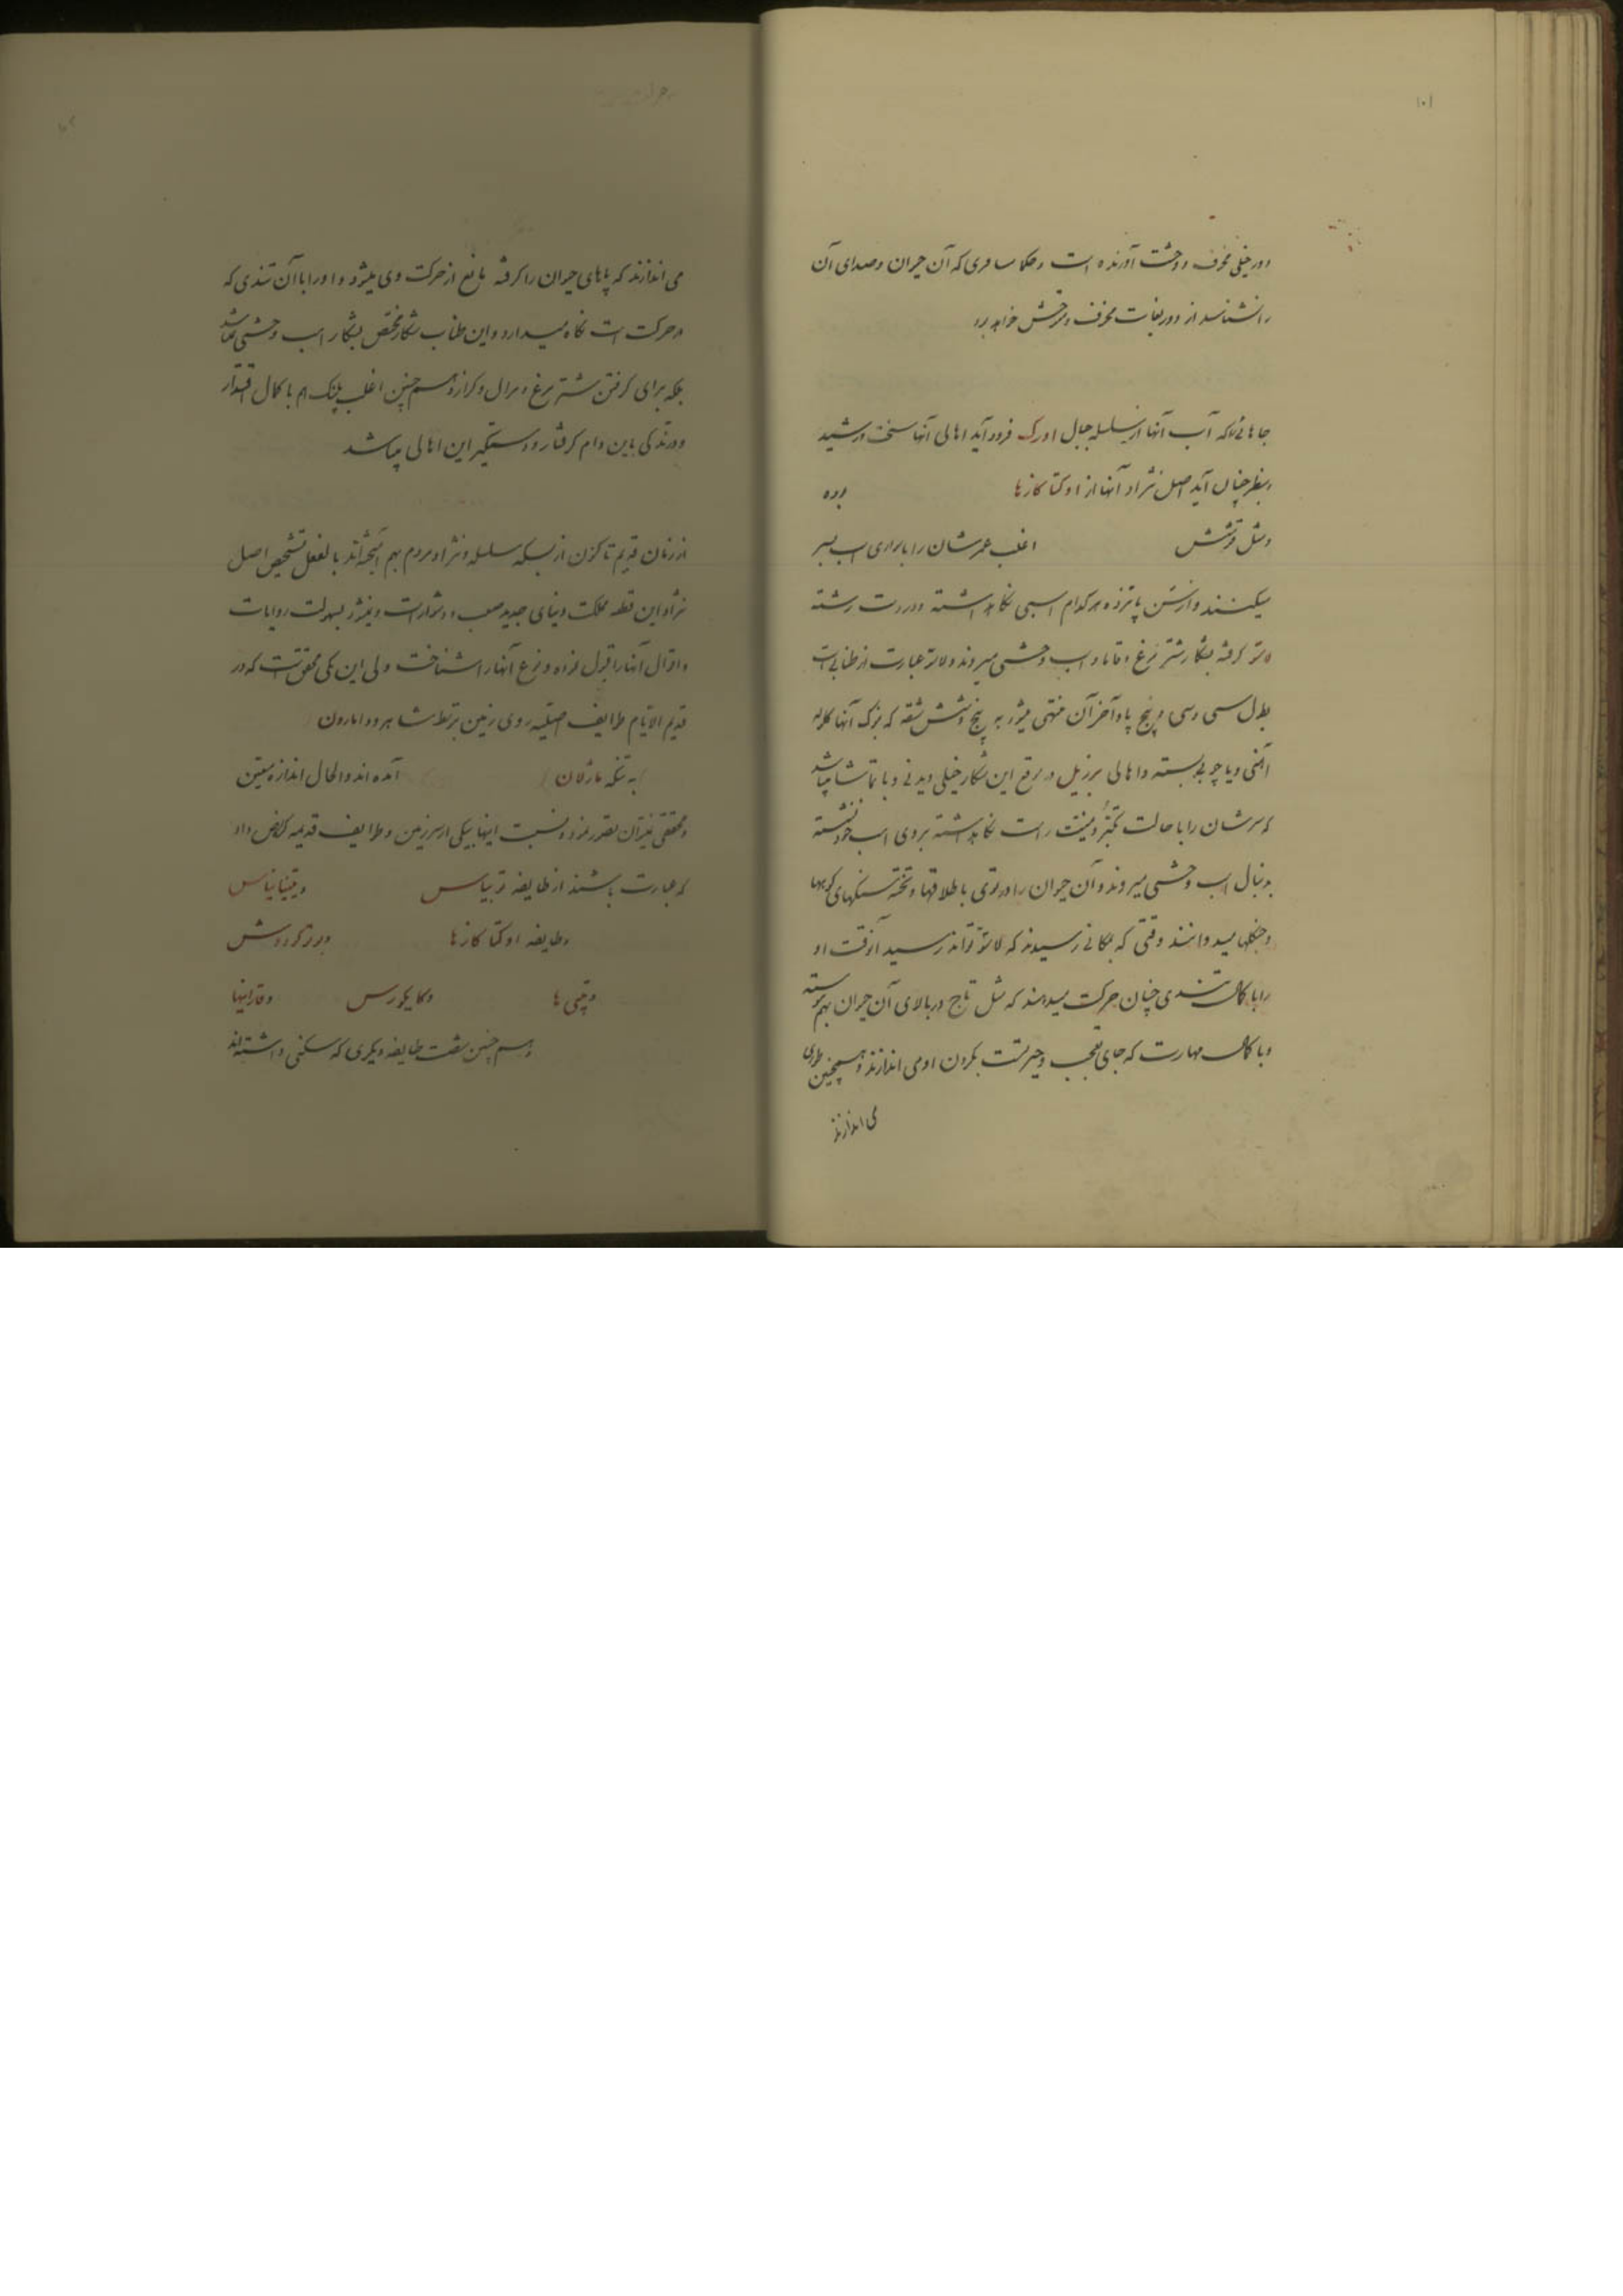 ۱۰۱
دور خیلی مخوف و وحشت آورنده است و حکما مسافری که آن حیوان و صدای آن
را نشناسد از دور بغایت مخوف و متوحش خواهد بود
جاهائی که آب آنها از سلسله جبال اورک فرود آید اهالی آنها سخت و رشید
بنظر چنان آید اصل نژاد آنها از اوکتا کازها بوده
و مثل اغلب عمرشان را با سواری اسب بسر
میکنند و از سن پانزده هر کدام اسبی نگاهداشته و در دست رشته
لاتو گرفته بشکار شتر مرغ و اسب وحشی میروند و لاتو عبارت از طنابی است
بطول سی و سی و پنج پا و آخر آن منتهی میشود به پنج و شش شقه که بنوک آنها گلوله
آهنی و یا چوبی بسته و اهالی برزیل در موقع این شکار خیلی دیدنی و با تماشا میباشد
که سرشان را با حالت تکبر و منیت راست نگاهداشته بروی اسب خود نشسته
بدنبال اسب وحشی میروند و آن حیوان را در توی باطلاقها و تخته سنگهای کوهها
و جنگلها میدوانند وقتی که بمکانی رسیدند که لاتو تواند رسید آنوقت او
را با کمال تندی چنان حرکت میدهند که مثل تاج در بالای آن حیوان بهم پیوسته
و با کمال مهارت که جای تعجب و حیرتست بگردن او می اندازند و همچنین طوری
می اندازند
می اندازند که پاهای حیوان را گرفته مانع از حرکت وی میشود و او را با آن تندی که
در حرکت است نگاه میدارد و این طناب شکار مختص بشکار اسب وحشی نمیباشد
بلکه برای گرفتن شتر مرغ و مرال و گراز و همچنین اغلب پلنگ هم با کمال اقتدار
و درندگی باین دام گرفتار و دستگیر این اهالی میباشد
از زمان قدیم تا کنون از بسکه سلسله و نژاد مردم بهم آمیخته‌اند بالفعل تشخیص اصل
نژاد این قطعه مملکت دنیای جدید صعب و دشوار است و نمیشود بسهولت روایات
و اقوال آنها را قبول نموده و نوع آنها را شناخت ولی این یکی محقق است که در
قدیم الایام طوایف اصلیه روی زمین بتوسط شاهرود امازون
به تنکه ماژلان آمده اند و الحال اندازه معین
و محققی نمیتوان تصور نمود و نسبت اینها بیکی از سرزمین و طوایف قدیمه داد
که عبارت باشند از طایفه توپیاس و تپیناپناس
و طایفه اوکتا کازها
و تپی ها
و همچنین هفت طایفه دیگری که سکنی داشته‌اند